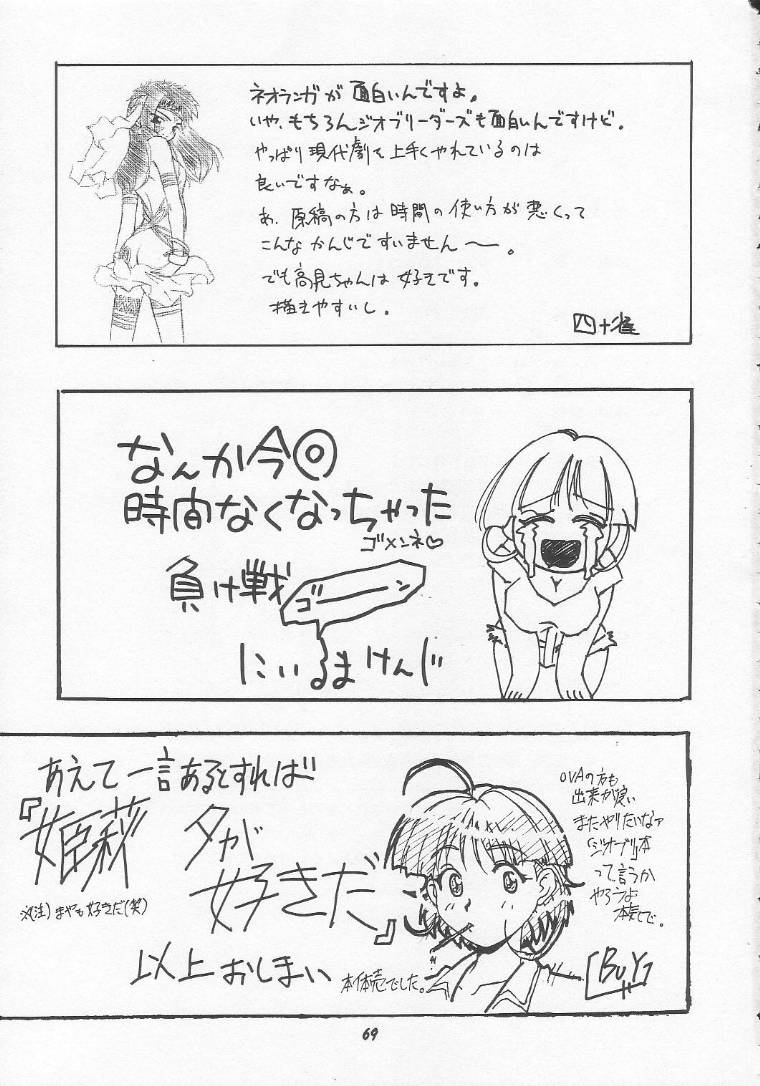 ネオランガが面白いんですよ。
いや、もちろんジオブリーダーズも面白いんですけど。
やっぱり現代劇を上手くやれているのは
良いですなぁ。
あ、原稿の方は時間の使い方が悪くって
こんなかんじですいません〜。
でも高見ちゃんは好きです。
描きやすいし。
四十雀
なんか今回
時間なくなっちゃった
ゴメンネ♡
負け戦
ゴーン
にいるまけんじ
あえて一言あるとすれば
『姫萩
夕が
好きだ』
※(注)まやも好きだ(笑)
以上おしまい
OVAの方も
出来が良い
またやりたいなァ
「ジオブリ」本
って言うか
やろうよ
BLLY
69